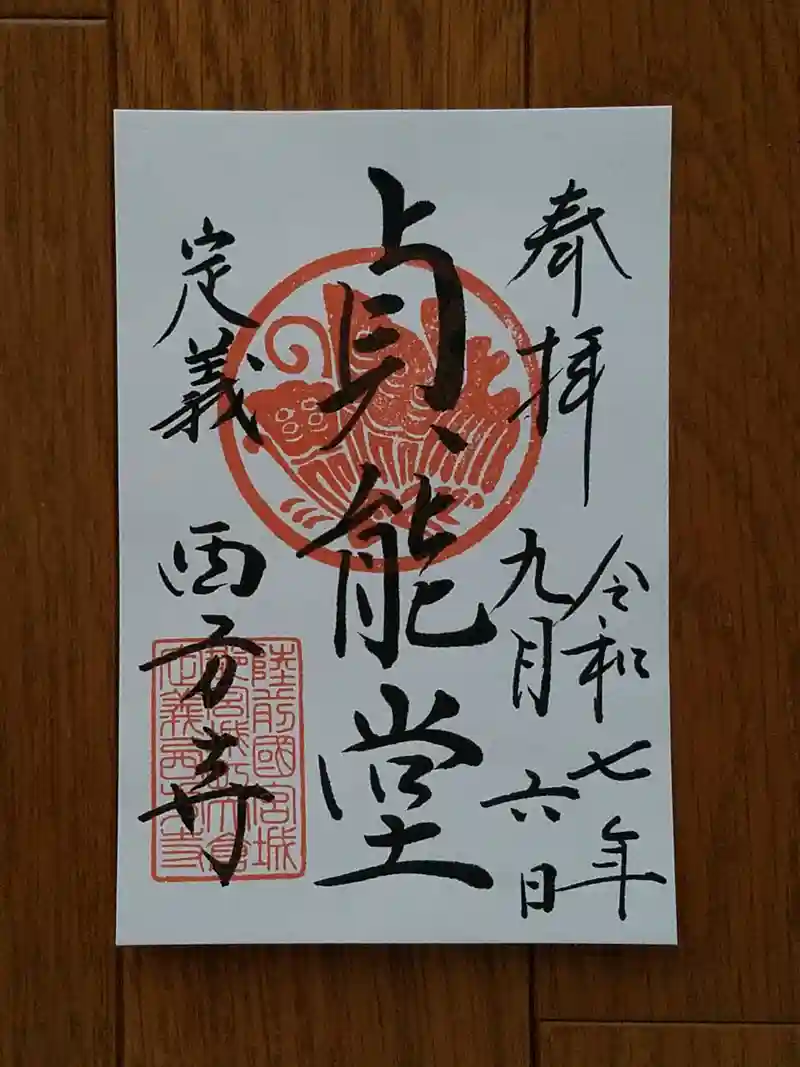 奉拝
令和七年
九月六日
貞能堂
定義
西方寺
陸前國宮城
定義西方寺